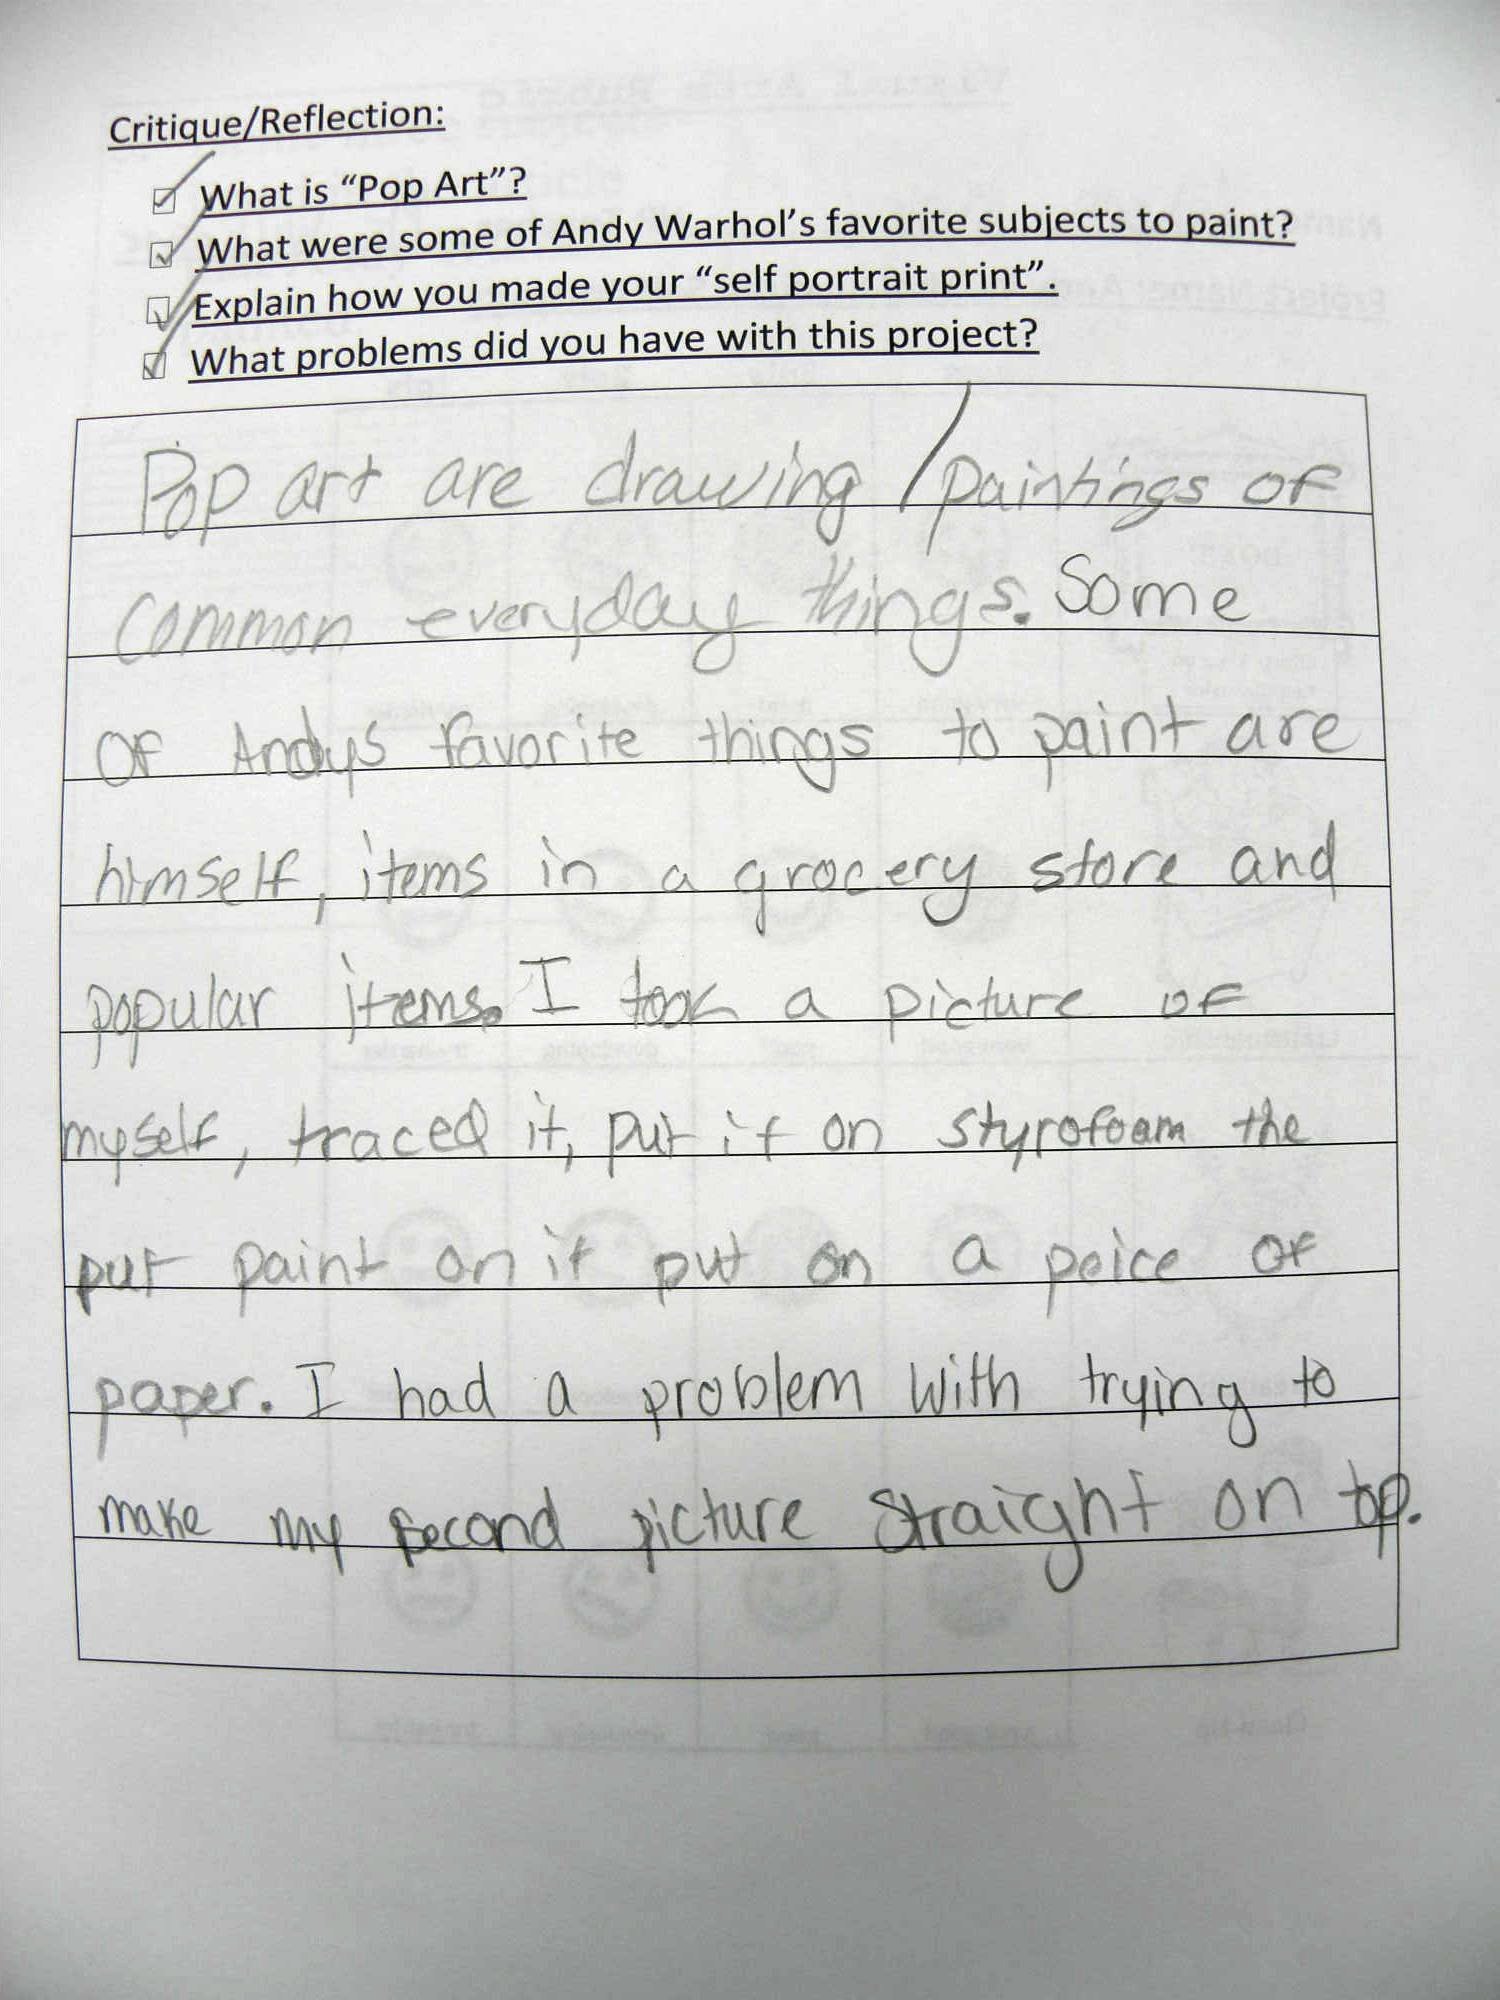 Critique/Reflection:
What is “Pop Art”?
What were some of Andy Warhol’s favorite subjects to paint?
Explain how you made your “self portrait print”.
What problems did you have with this project?
Pop art are drawing /paintings of
common everyday things. Some
of Andys favorite things to paint are
himself, items in a grocery store and
popular items. I took a picture of
myself, traced it, put it on styrofoam the
put paint on it put on a peice of
paper. I had a problem with trying to
make my second picture straight on top.